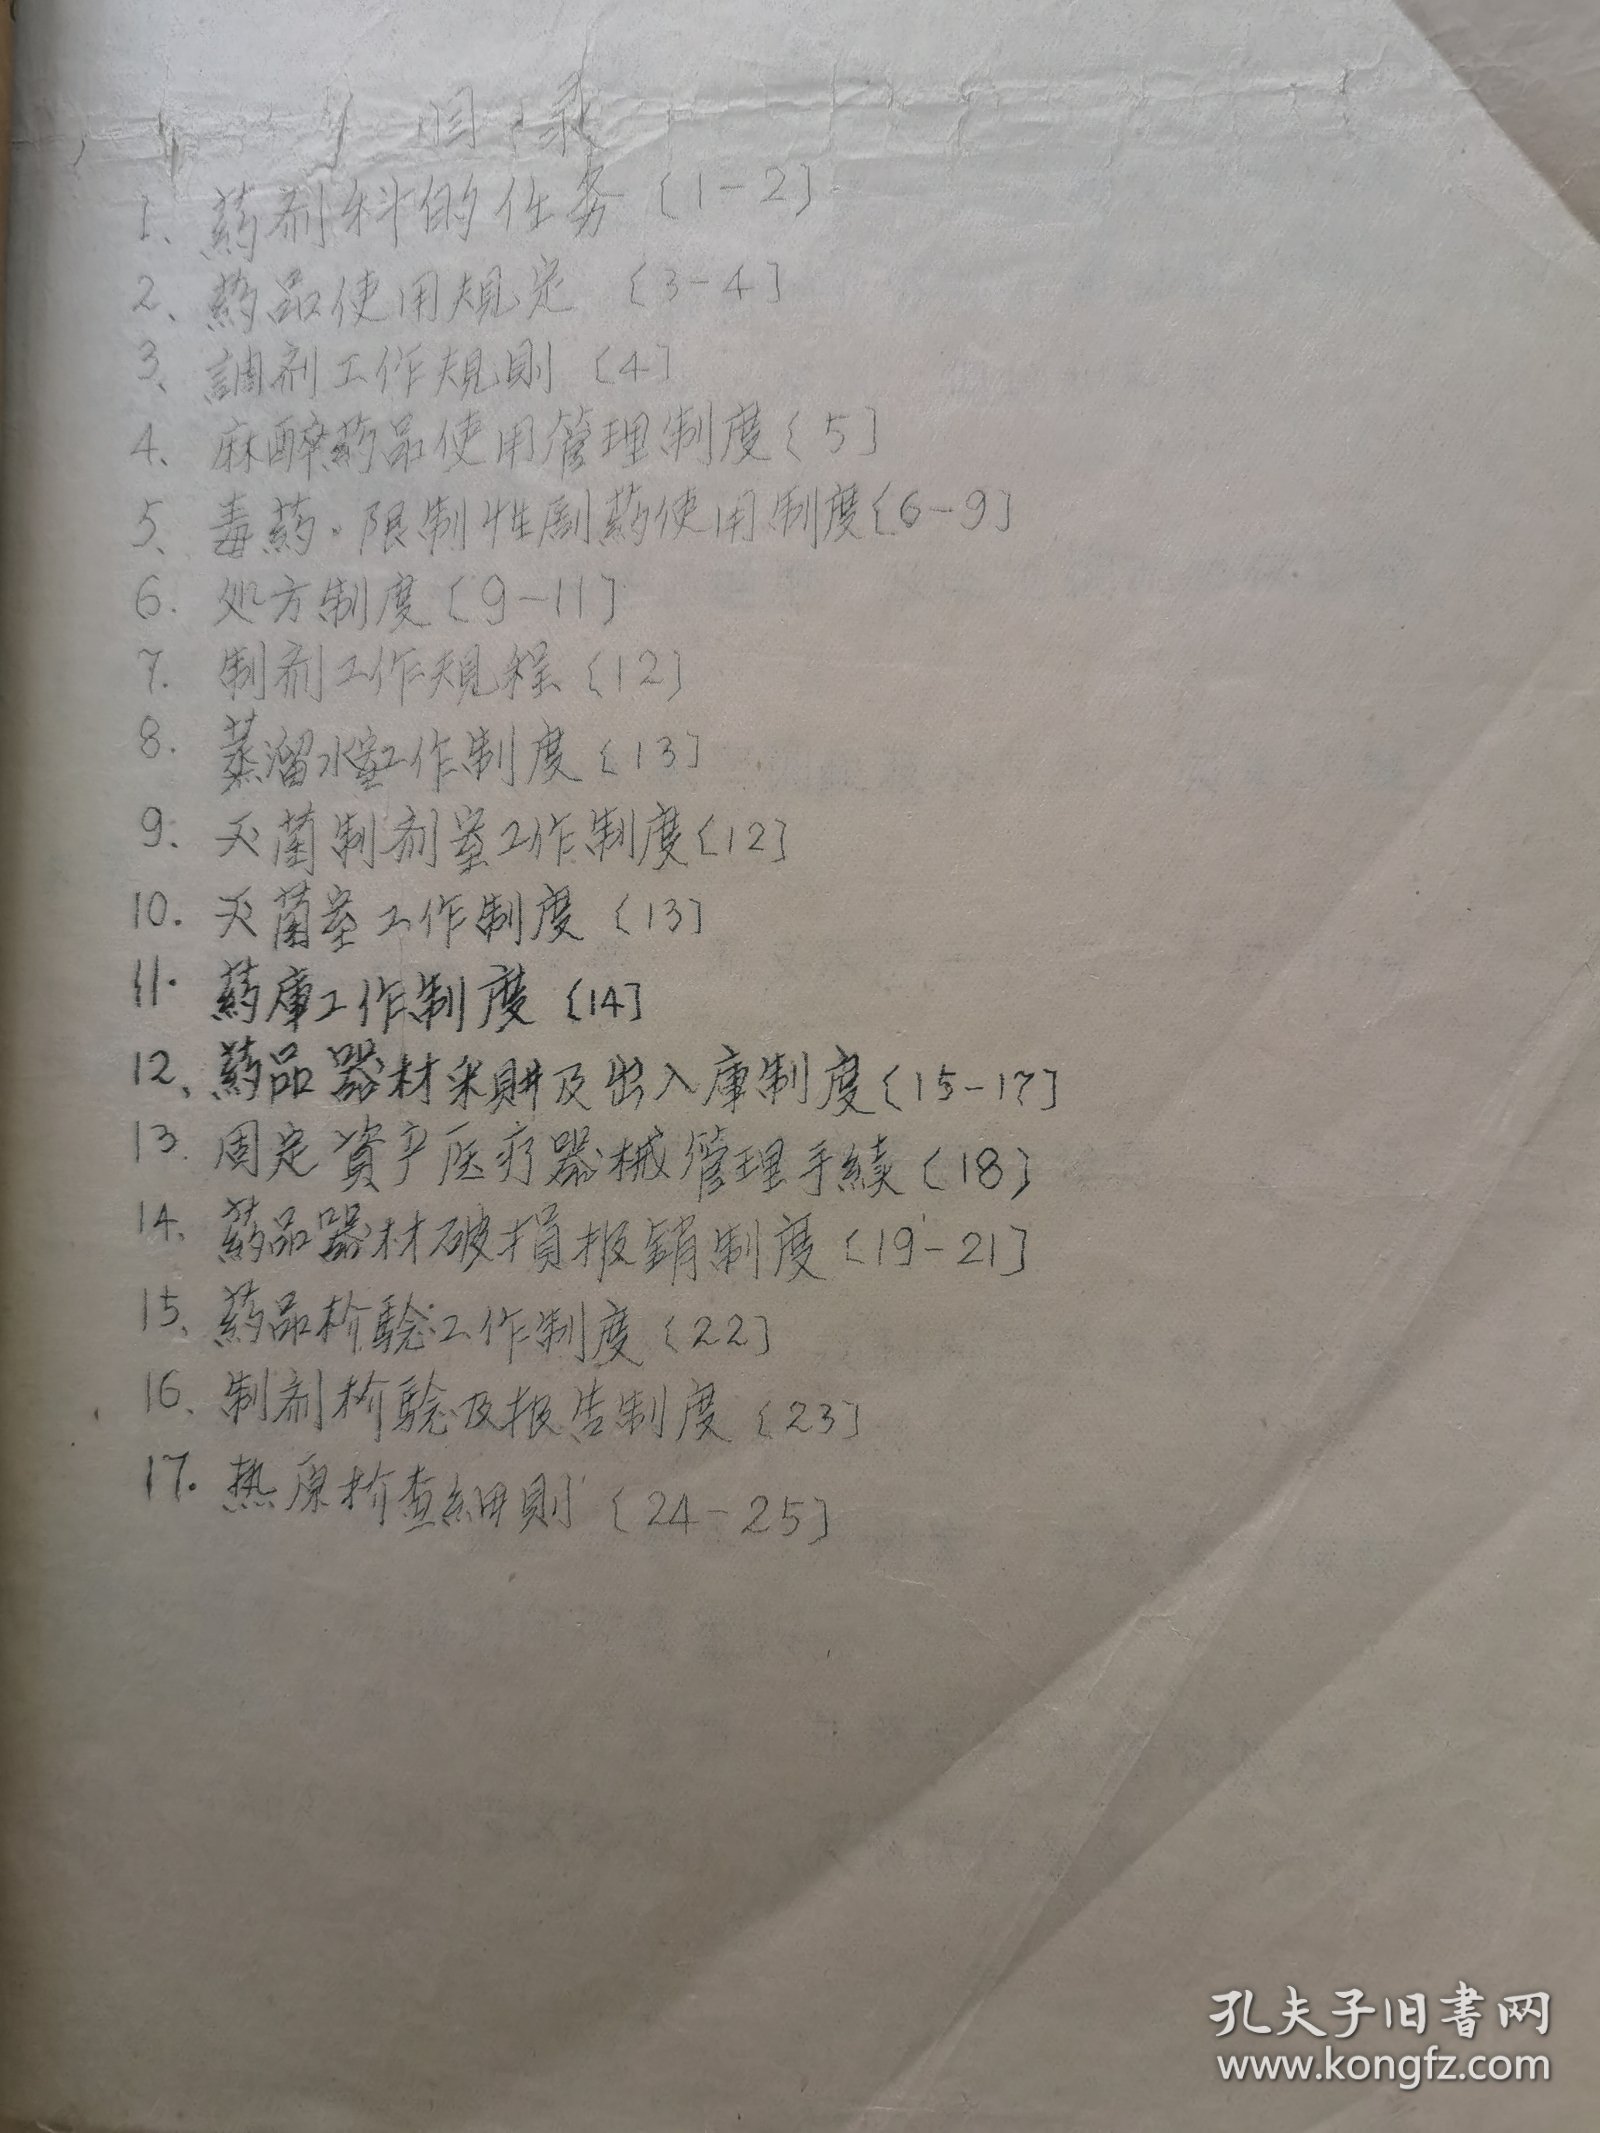 目录
1、药剂科的任务〔1-2〕
2、药品使用规定〔3-4〕
3、調剂工作規則〔4〕
4、麻醉药品使用管理制度〔5〕
5、毒药·限制性剧药使用制度〔6-9〕
6.处方制度〔9-11〕
7.制剂工作規程〔12〕
8.蒸溜水室工作制度〔13〕
9.灭菌制剂室工作制度〔12〕
10.灭菌室工作制度〔13〕
11.药庫工作制度〔14〕
12、药品器材采購及出入庫制度〔15-17〕
13.固定資产医疗器械管理手續〔18〕
14、药品器材破損报銷制度〔19-21〕
15、药品检驗工作制度〔22〕
16、制剂检驗及报告制度〔23〕
17.热原检查細則〔24-25〕
孔夫子旧書网
www.kongfz.com